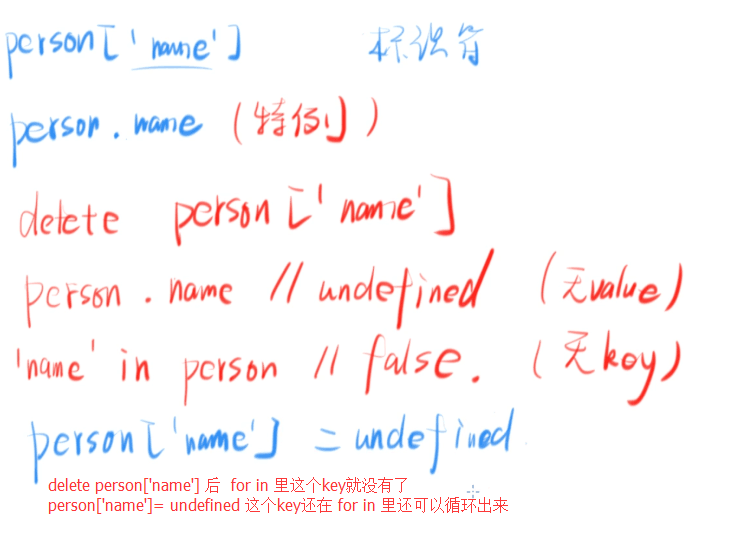 person['name'] 标识符
person.name (特例)
delete person['name']
person.name // undefined (无value)
'name' in person // false. (无key)
person['name'] = undefined
delete person['name'] 后 for in 里这个key就没有了
person['name']= undefined 这个key还在 for in 里还可以循环出来